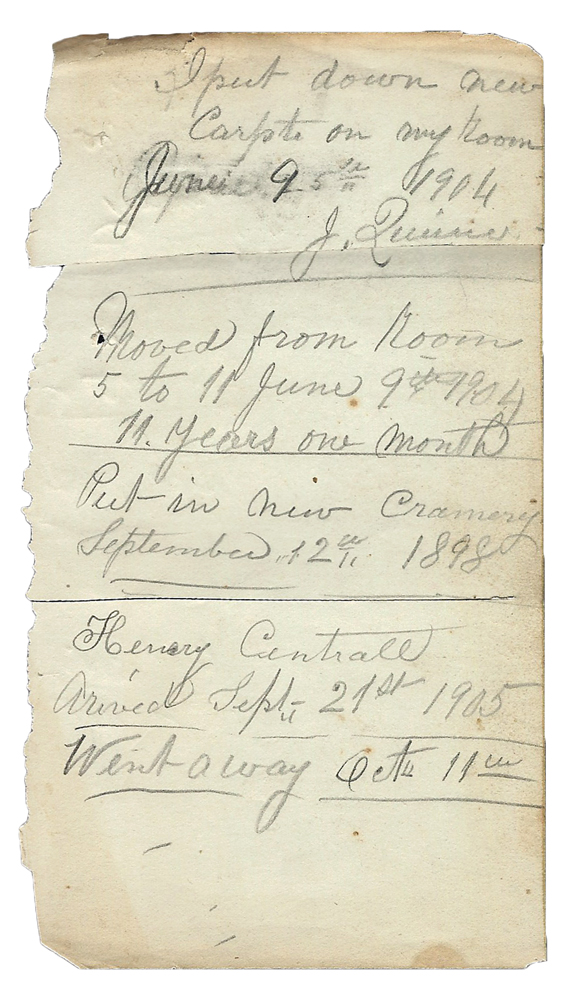 I put down new
Carpte on my Room
June 9 5th 1904
J. Quinn
Moved from Room
5 to 11 June 9th 1904
11. Years one month
Put in new Cramery
September 12th 1898
Henery Centrall
Arived Sept 21st 1905
Went away Oct 11th